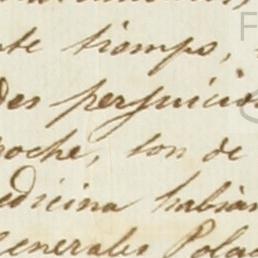 nte tiempo,
des perjuicios
noche, son de
edicina habian
Generales Polac